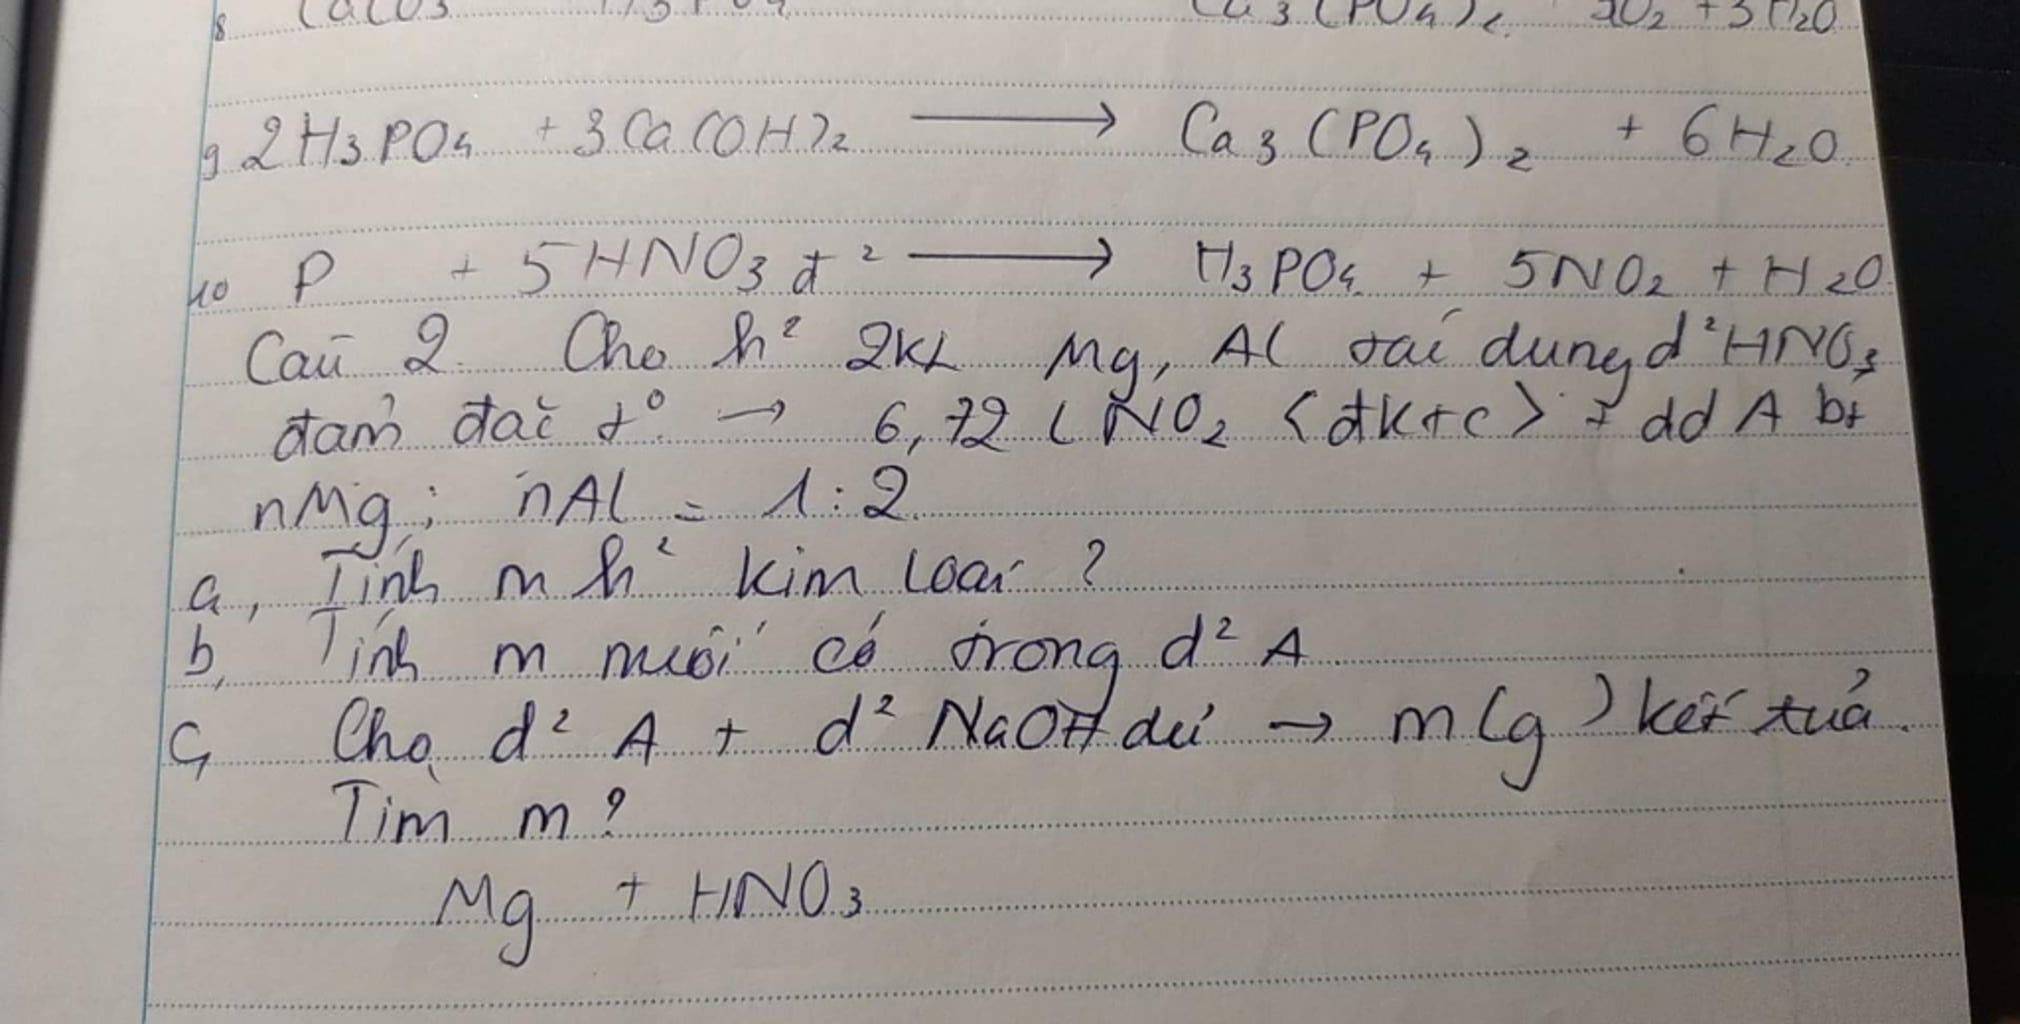 8 CaCO3 H3PO4 Ca3(PO4)2 + 3H2O
9 2H3PO4 + 3Ca(OH)2 → Ca3(PO4)2 + 6H2O
10 P + 5HNO3 đ² → H3PO4 + 5NO2 + H2O
Câu 2. Cho h² 2KL Mg, Al tác dụng d² HNO3
đậm đặc t° → 6,72 l NO2 <đktc> + dd A bt
nMg : nAl = 1 : 2
a, Tính m h² kim loại ?
b, Tính m muối có trong d² A
c, Cho d² A + d² NaOH dư → m(g) kết tủa.
Tìm m ?
Mg + HNO3